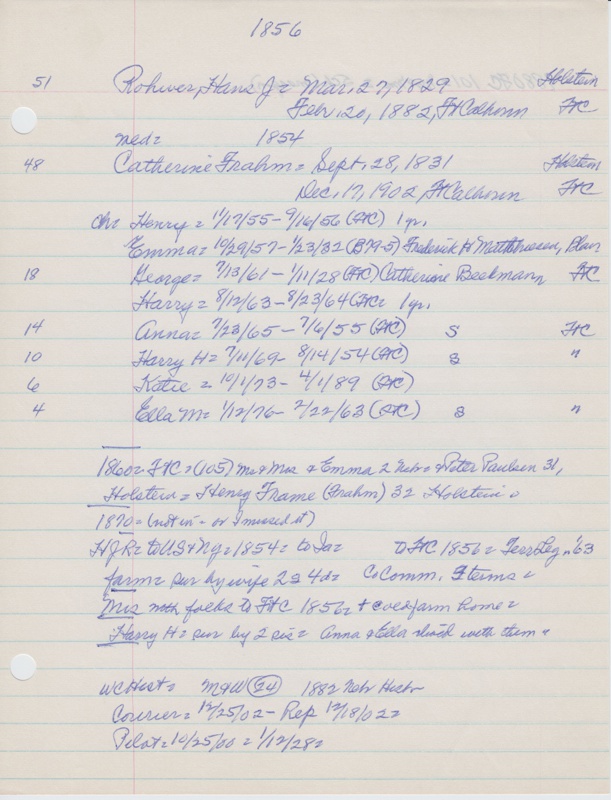 1856
51 Rohwer, Hans J = Mar. 27, 1829 Holstein
Febr. 20, 1882, Ft Calhoun FtC
med = 1854
48 Catherine Frahm = Sept. 28, 1831 Holstein
Dec. 17, 1902, Ft Calhoun FtC
Ch = Henry = 11/17/55 - 9/16/56 (FtC) 1 yr.
Emma = 10/29/57 - 1/23/32 (B79-5) Frederick H Matthiesen, Blair
18 George = 7/13/61 - 1/11/28 (FtC) Catherine Beekmann FtC
Harry = 8/12/63 - 8/23/64 (FtC = 1 yr.
14 Anna = 7/23/65 - 7/6/55 (FtC) S FtC
10 Harry H = 7/11/69 - 8/14/54 (FtC) S "
6 Katie = 10/1/73 - 4/1/89 (FtC)
4 Ella M = 1/12/76 - 2/22/63 (FtC) S "
1860 = FtC = (105) Mr & Mrs & Emma 2 Nebr = & Peter Paulsen 31,
Holstein = Henry Frame (Frahm) 32 Holstein =
1870 = (not in - or I missed it)
HJR = to US & = 1854 = to Ia = to FtC 1856 = Terr Leg = '63
farm = sur by wife 2s 4d = Co Comm. terms =
Mrs folks to FtC 1856 = + farm home =
Harry H = sur by 2 sis = Anna & Ella lived with them =
WC Hist = M&W (24) 1882 Nebr Hist =
Courier = 12/25/02 - Rep 12/18/02 =
Pilot = 10/25/00 = 1/12/28 =